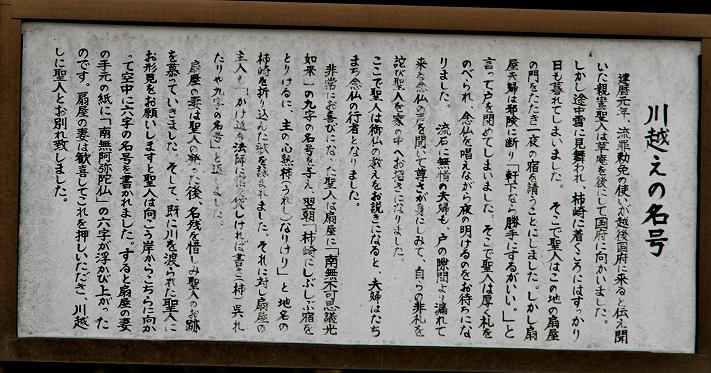 川越えの名号
建暦元年、流罪勅免の使いが越後国府に来ると伝え聞
いた親鸞聖人は草庵を後にして国府に向かいました。
しかし途中雪に見舞われ、柿崎に着くころにはすっかり
日も暮れてしまいました。そこで聖人はこの地の扇屋
の門をたたき一夜の宿を請うことにしました。しかし扇
屋夫婦は邪険に断り「軒下なら勝手にするがいい。」と
言って戸を閉めてしまいました。そこで聖人は厚く礼を
のべられ、念仏を唱えながら夜の明けるのをお待ちにな
りました。流石に無情の夫婦も、戸の隙間より漏れて
来る念仏の声を聞いて尊さが身にしみて、自らの非礼を
詫び聖人を家の中へお招きになりました。
ここで聖人は御仏の教えをお説きになると、夫婦はたち
まち念仏の行者となりました。
非常にお喜びになった聖人は扇屋に「南無不可思議光
如来」の九字の名号を与え、翌朝「柿崎にしぶしぶ宿を
とりけるに、主の心熟柿(うれし)なりけり」と地名の
柿崎を折り込んだ歌を詠まれました。それに対し扇屋の
主人も「かけ通る法師に宿を貸しければ書き(柿)呉れ
たりや九字の名号」と返しました。
扇屋の妻は聖人の発った後、名残を惜しみ聖人のお跡
を慕っていきました。そして、既に川を渡られた聖人に
お形見をお願いしますと聖人は向こう岸からこちらに向か
って空中に六字の名号を書かれました。すると扇屋の妻
の手元の紙に「南無阿弥陀仏」の六字が浮かび上がった
のです。扇屋の妻は歓喜してこれを押しいただき、川越
しに聖人とお別れ致しました。